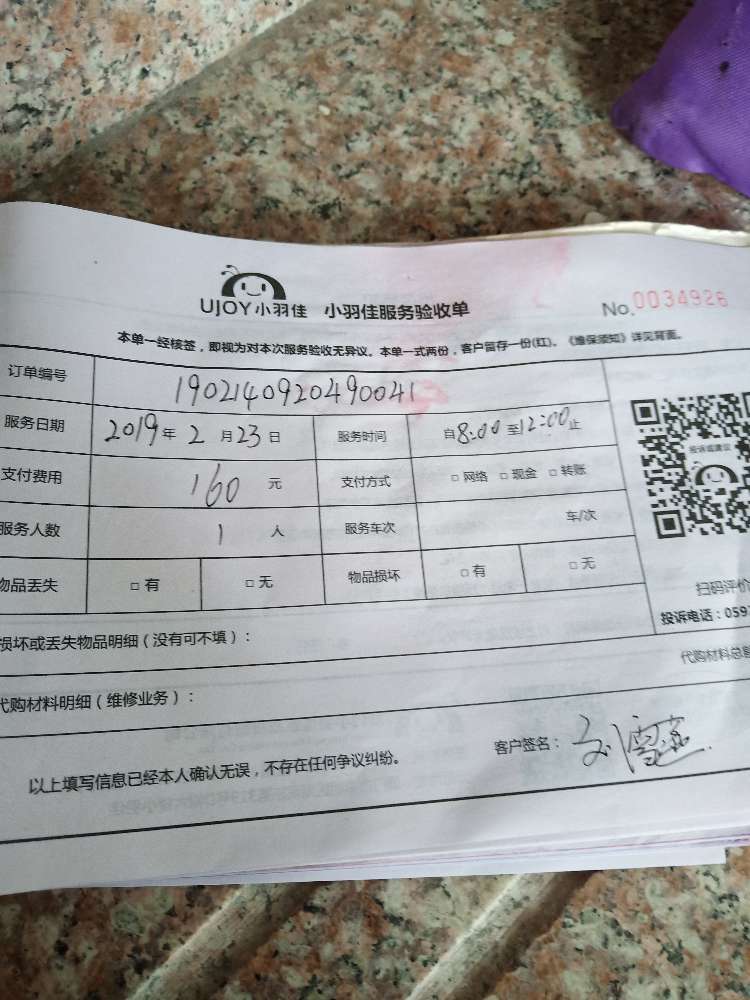 UJOY小羽佳 小羽佳服务验收单 No.0034926
本单一经核签，即视为对本次服务验收无异议。本单一式两份，客户留存一份(红)。《维保须知》详见背面。
订单编号 1902140920490041
服务日期 2019年2月23日 服务时间 自8:00至12:00止
支付费用 160元 支付方式 □网络 □现金 □转账
服务人数 1人 服务车次 车/次
物品丢失 □有 □无 物品损坏 □有 □无
投诉或建议
扫码评价
投诉电话：059
损坏或丢失物品明细（没有可不填）：
代购材料总
代购材料明细（维修业务）：
以上填写信息已经本人确认无误，不存在任何争议纠纷。 客户签名：